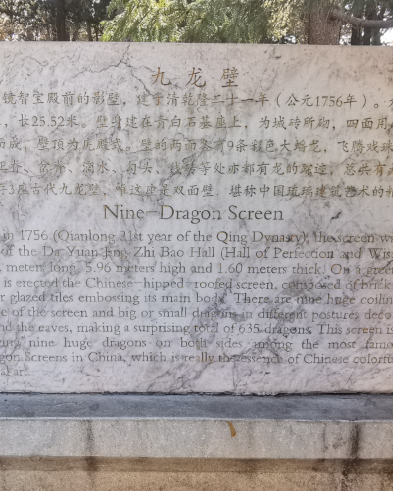 九龙壁
镜智宝殿前的影壁，建于清乾隆二十一年（公元1756年）。
长25.52米。壁身建在青白石基座上，为城砖所砌，四面用
而成，壁顶为庑殿式。壁的两面各有9条彩色大蟠龙，飞腾戏珠
正脊、岔脊、滴水、勾头、线砖等处亦都有龙的踪迹，总共有
3座古代九龙壁，唯这座是双面壁，堪称中国琉璃建筑艺术的
Nine-Dragon Screen
in 1756 (Qianlong 21st year of the Qing Dynasty), the screen w
of the Da Yuan Jing Zhi Bao Hall (Hall of Perfection and Wis
meters long, 5.96 meters high and 1.60 meters thick. On a green
is erected the Chinese-hipped-roofed screen, composed of brick
glazed tiles embossing its main body. There are nine huge coilin
e of the screen and big or small dragons in different postures deco
nd the eaves, making a surprising total of 635 dragons. This screen is
nine huge dragons on both sides among the most famo
gon Screens in China, which is really the essence of Chinese colorfu